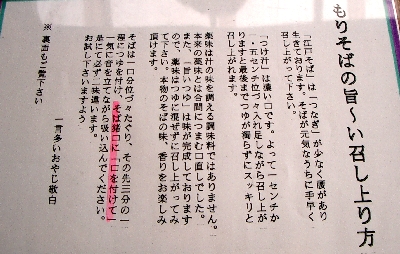 もりそばの旨〜い召し上り方
「江戸そば」は「つなぎ」が少なく腰があり
生きております。そばが元気なうちに手早く
召し上がって下さい。
「つけ汁」は濃い口です。よって一センチか
一・五センチ位づつ入れ足しながら召し上が
りますと最後までつゆが濁らずにスッキリと
召し上がれます。
薬味は汁の味を調える調味料ではありません。
本来の薬味とは合間につまむ口直しでした。
また、「旨いつゆ」は味が完成しております
ので、薬味はつゆに混ぜずに召し上がってみ
て下さい。本物のそばの味、香りをお楽しみ
頂けます。
そばは一口分位づゝたぐり、その先三分の一
程につゆを付け、そば猪口に一口を付けて
一気に音を立てながら吸い込んでください。
是にて必ず一味違います。
お試し下さいますよう
一言多いおやじ敬白
※ 裏面もご覧下さい